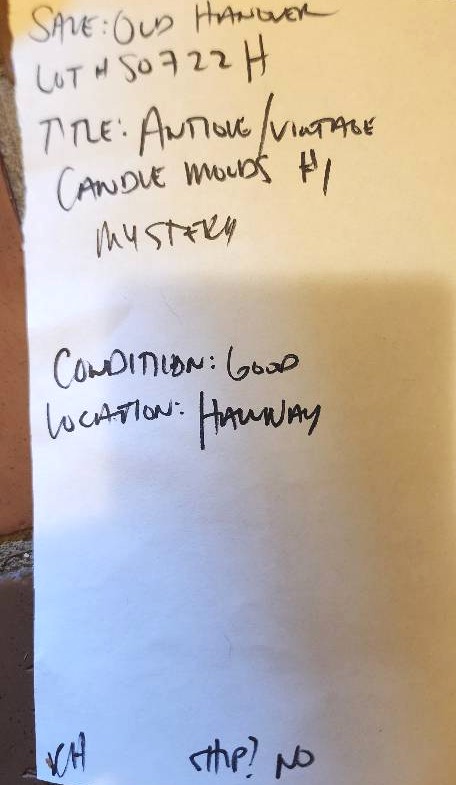 SALE: OLD HANOVER
LOT # 50722 H
TITLE: ANTIQUE/VINTAGE
CANDLE MOLDS #1
MYSTERY
CONDITION: GOOD
LOCATION: HALLWAY
SHIP? NO